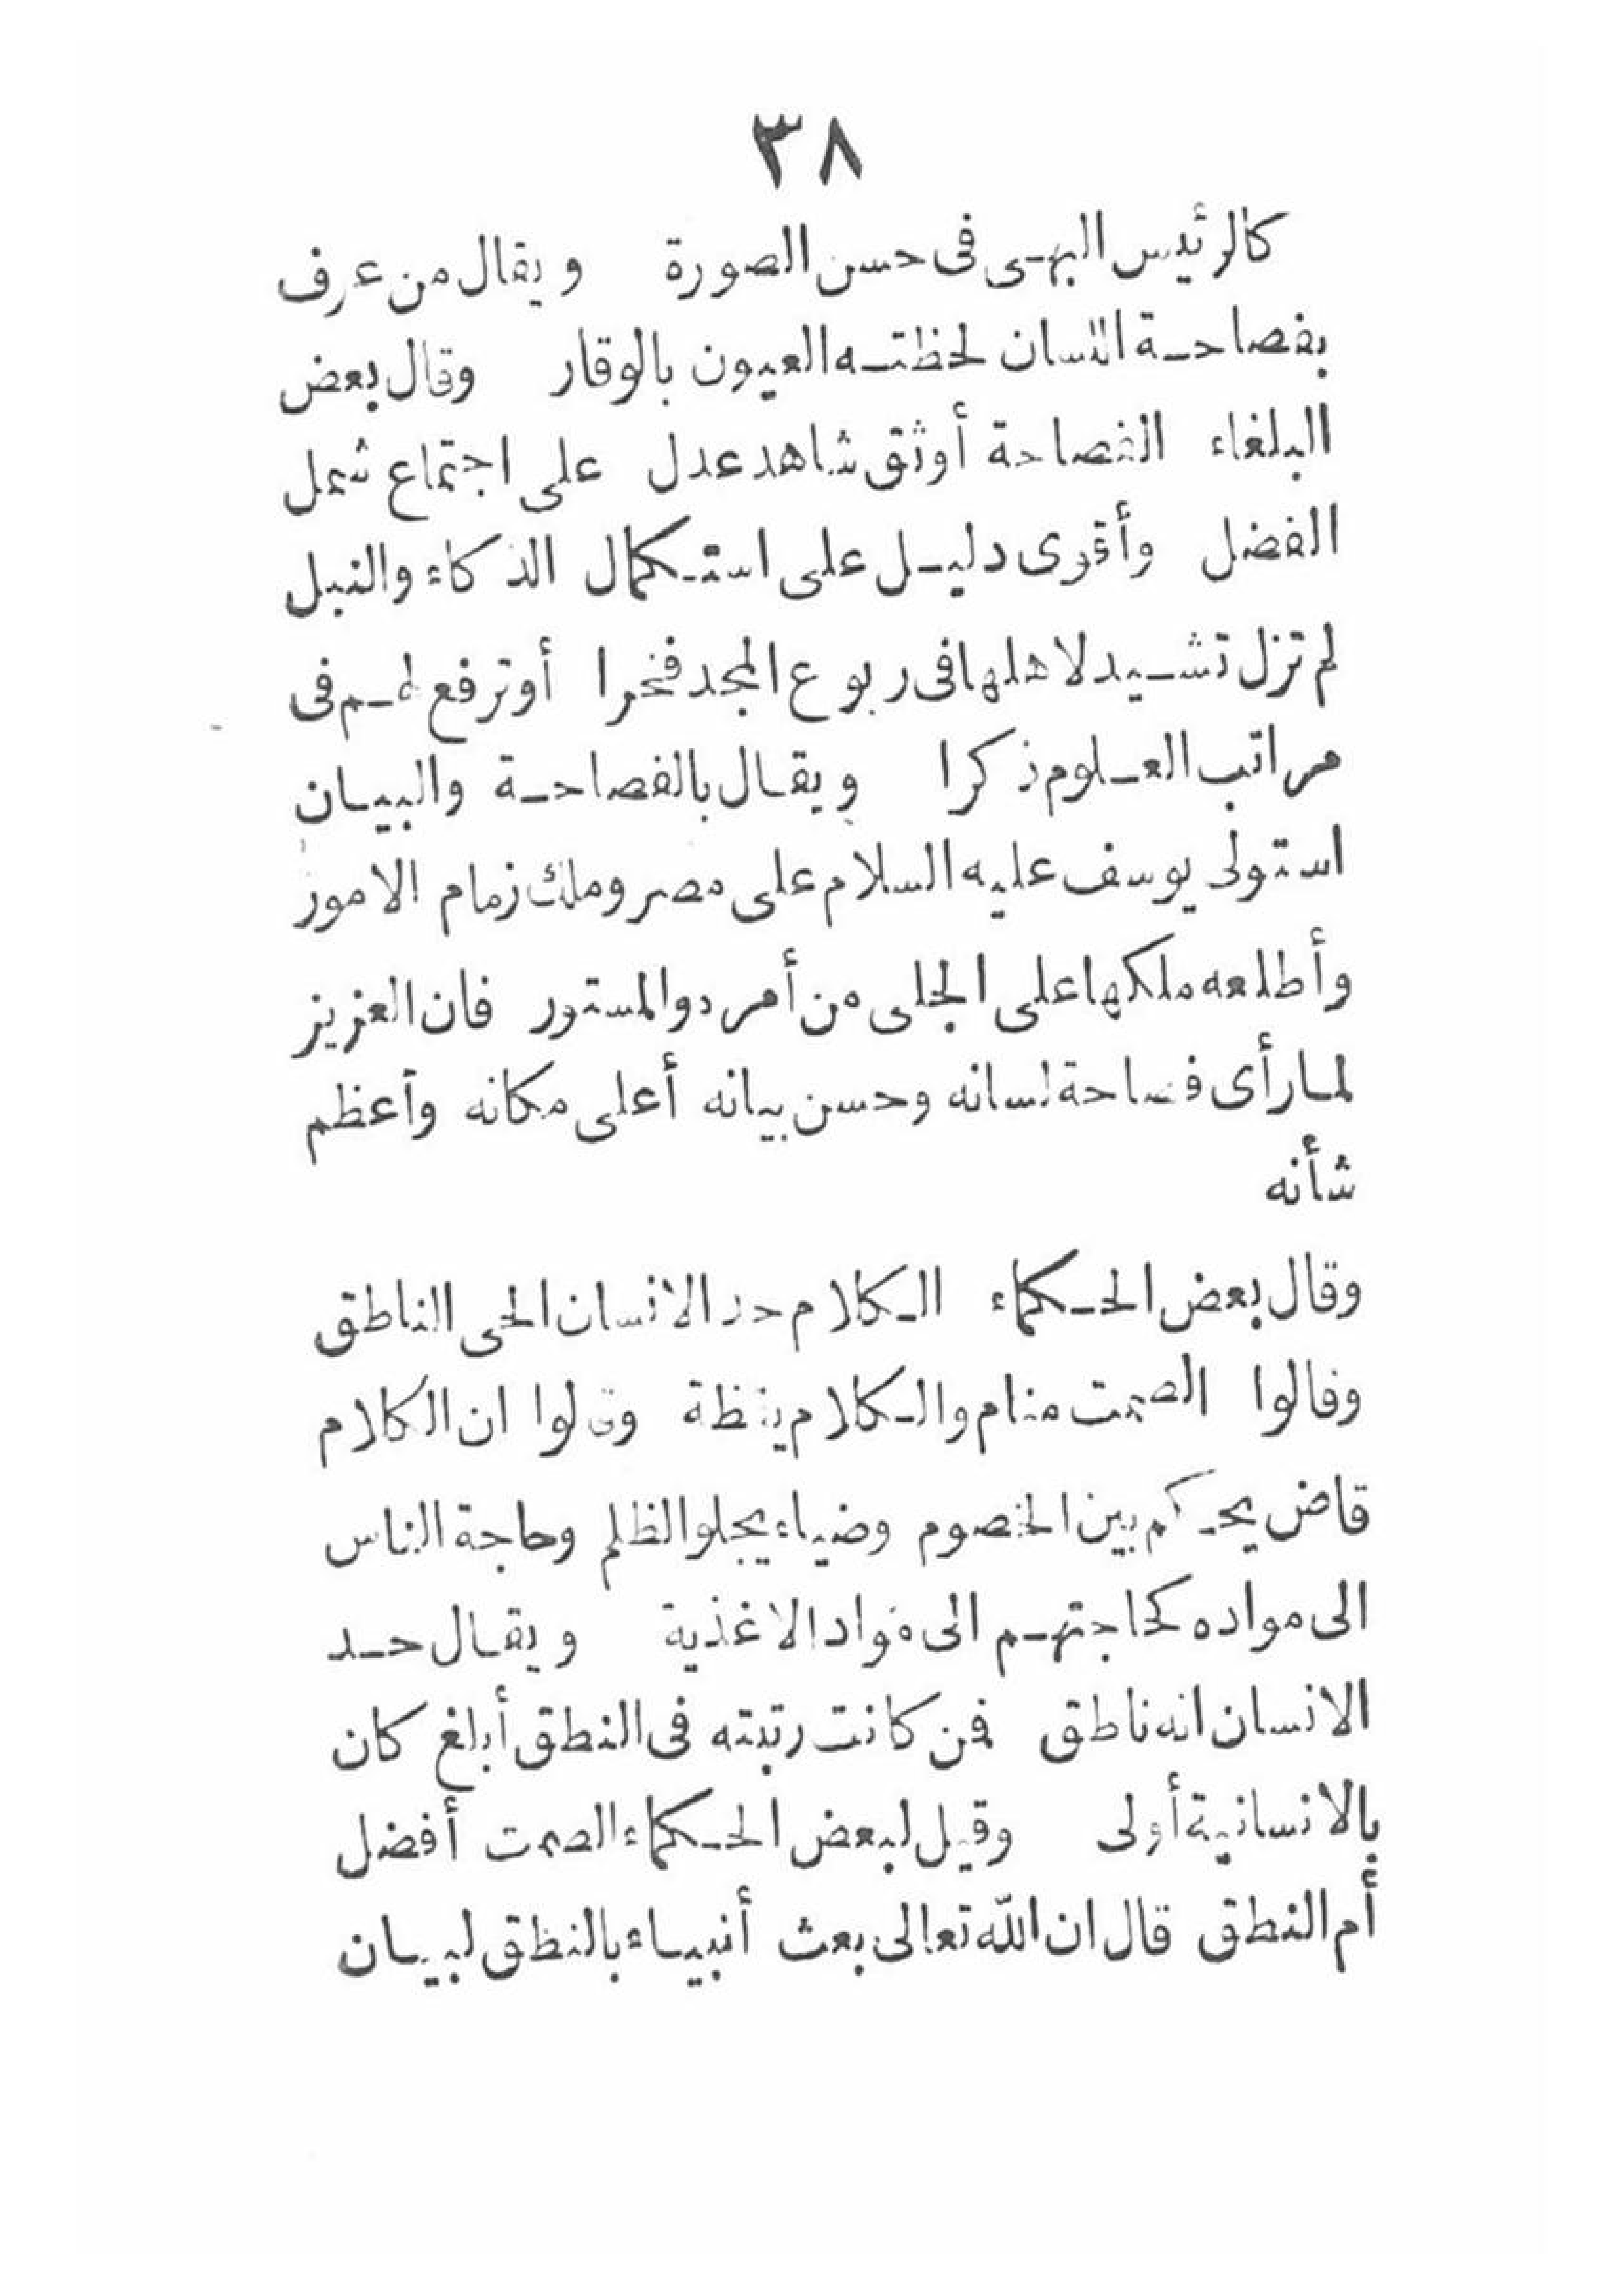 ٣٨
كالرئيس البهى فى حسن الصورة ويقال من عرف
بفصاحة اللسان لحظته العيون بالوقار وقال بعض
البلغاء الفصاحة أوثق شاهد عدل على اجتماع شمل
الفضل وأقوى دليل على استكمال الذكاء والنبل
لم تزل تشيد لاهلها فى ربوع المجد فخرا أو ترفع لهم فى
مراتب العلوم ذكرا ويقال بالفصاحة والبيان
استولى يوسف عليه السلام على مصر وملك زمام الامور
وأطلعه ملكها على الجلى من أمره والمستور فان العزيز
لما رأى فصاحة لسانه وحسن بيانه أعلى مكانه وأعظم
شأنه
وقال بعض الحكماء الكلام حد الانسان الحى الناطق
وقالوا الصمت منام والكلام يقظة وقالوا ان الكلام
قاض يحكم بين الخصوم وضياء يجلو الظلم وحاجة الناس
الى مواده كحاجتهم الى مواد الاغذية ويقال حد
الانسان انه ناطق فمن كانت رتبته فى النطق أبلغ كان
بالانسانية أولى وقيل لبعض الحكماء الصمت أفضل
أم النطق قال ان الله تعالى بعث أنبياء بالنطق لبيان